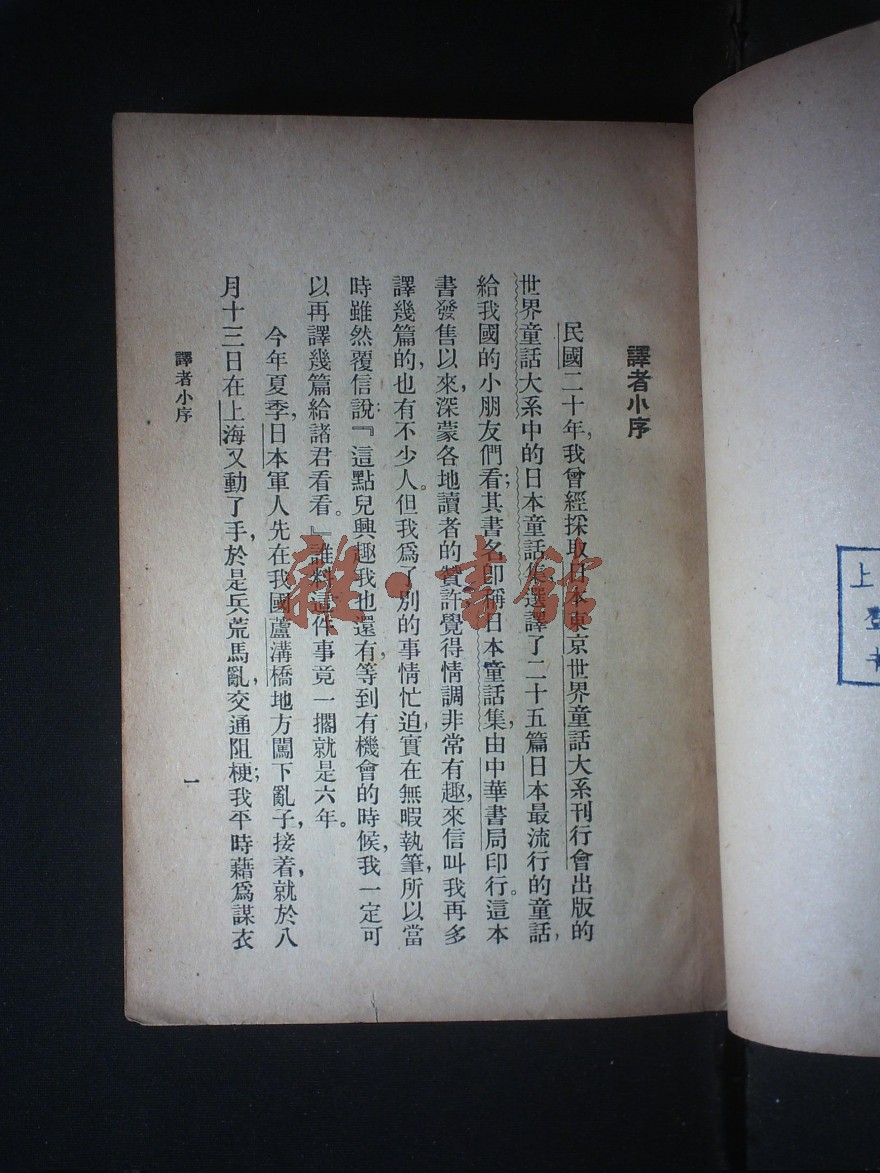 譯者小序
民國二十年，我曾經採取日本東京世界童話大系刊行會出版的
世界童話大系中的日本童話集，選譯了二十五篇日本最流行的童話，
給我國的小朋友們看；其書名卽稱日本童話集，由中華書局印行。這本
書發售以來，深蒙各地讀者的贊許，覺得情調非常有趣，來信叫我再多
譯幾篇的，也有不少人。但我爲了別的事情忙迫，實在無暇執筆，所以當
時雖然覆信說：『這點兒興趣我也還有，等到有機會的時候，我一定可
以再譯幾篇給諸君看看。』誰料這件事竟一擱就是六年。
今年夏季，日本軍人先在我國蘆溝橋地方闖下亂子，接着就於八
月十三日在上海又動了手，於是兵荒馬亂，交通阻梗；我平時藉爲謀衣
譯者小序
一
雜·書館
上